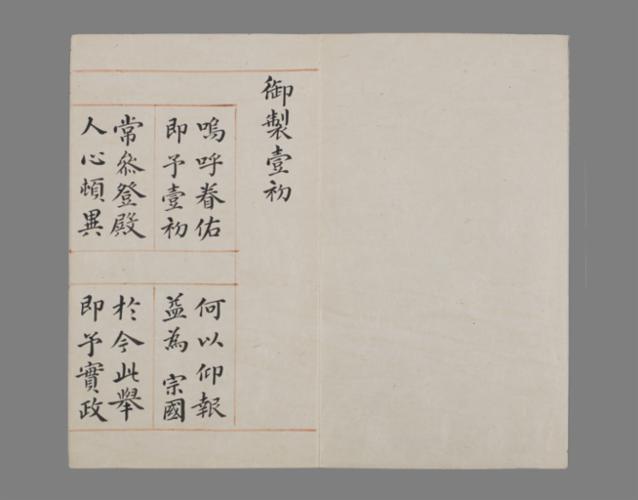 御製壹初
嗚呼眷佑
即予壹初
何以仰報
益為 宗國
常叅登殿
人心頓異
於今此舉
即予實政